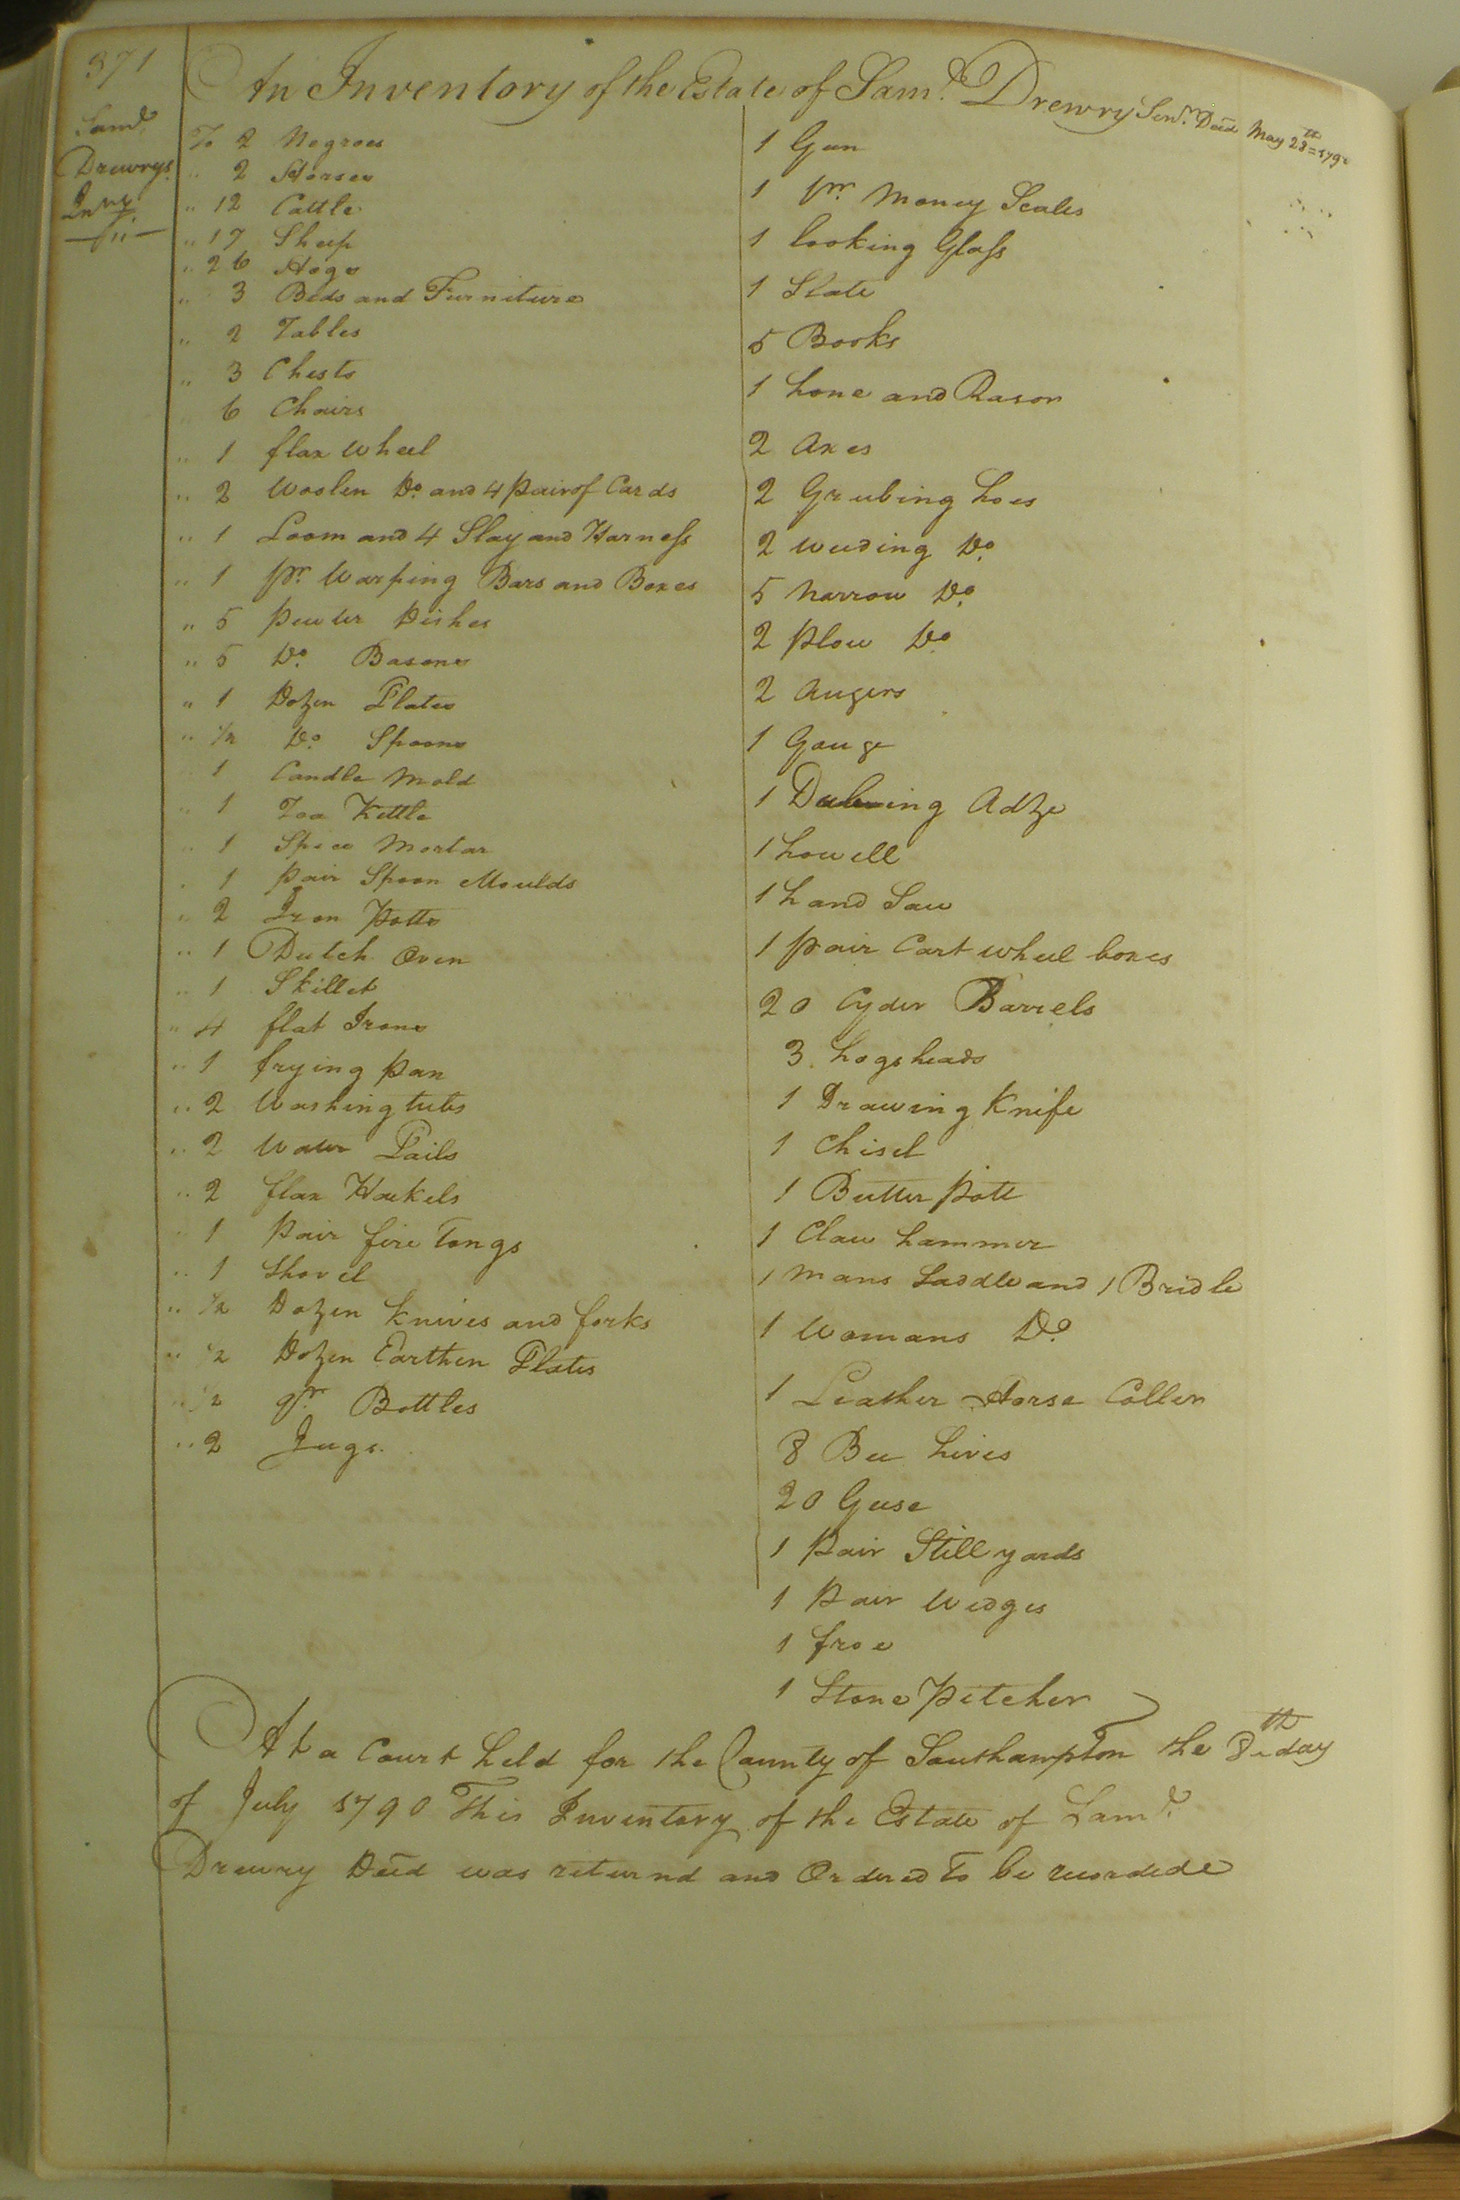 371
An Inventory of the Estate of Sam.l Drewry Sen.r Decd May 28th = 1790
Sam.l
Drewrys
Inv.y
To 2 Negroes
" 2 Horses
" 12 Cattle
" 17 Sheep
" 26 Hogs
" 3 Beds and Furniture
" 2 Tables
" 3 Chests
6 Chairs
" 1 flax wheel
" 2 Woolen Do. and 4 pair of Cards
" 1 Loom and 4 Slay and Harness
" 1 pr. Warping Bars and Boxes
" 5 Pewter Dishes
" 5 Do. Basons
" 1 Dozen Plates
" 1/2 Do. Spoons
1 Candle Mold
" 1 Tea Kettle
" 1 Spice Mortar
" 1 pair Spoon Moulds
" 2 Iron Potts
" 1 Dutch Oven
" 1 Skillet
" 4 flat Irons
" 1 frying pan
" 2 Washing tubs
" 2 Water Pails
" 2 flax Hackels
" 1 Pair fire Tongs
" 1 Shovel
" 1/2 Dozen knives and forks
" 1/2 Dozen Earthen Plates
" 1/2 gr. Bottles
" 2 Jugs.
1 Gun
1 pr. Money Scales
1 looking Glass
1 Slate
5 Books
1 hone and Rason
2 Axes
2 Grubing hoes
2 weeding Do.
5 Narrow Do.
2 plow Do.
2 Augers
1 Gouge
1 Dubing Adze
1 howell
1 hand Saw
1 pair Cart wheel boxes
20 Cyder Barrels
3 hogsheads
1 Drawing Knife
1 Chisel
1 Butter pott
1 Claw hammer
1 Mans Saddle and 1 Bridle
1 Womans Do.
1 Leather Horse Coller
8 Bee hives
20 Geese
1 Pair Still yards
1 Pair Wedges
1 froe
1 Stone Pitcher
At a Court held for the County of Southampton the 8th day
of July 1790 This Inventory of the Estate of Sam.l
Drewry Decd was returnd and Ordered to be recorded